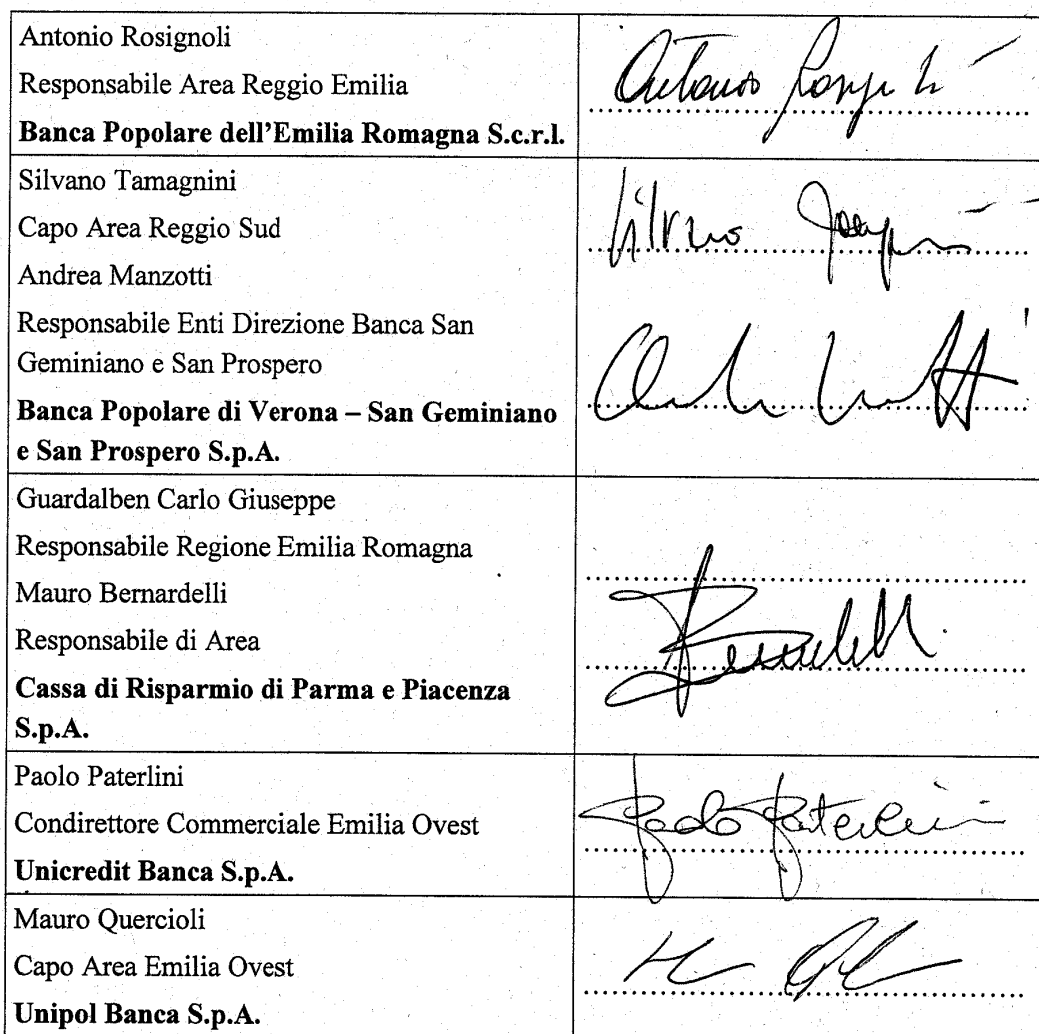 Antonio Rosignoli
Responsabile Area Reggio Emilia
Banca Popolare dell'Emilia Romagna S.c.r.l.
Antonio
Silvano Tamagnini
Capo Area Reggio Sud
Andrea Manzotti
Responsabile Enti Direzione Banca San
Geminiano e San Prospero
Banca Popolare di Verona – San Geminiano
e San Prospero S.p.A.
Guardalben Carlo Giuseppe
Responsabile Regione Emilia Romagna
Mauro Bernardelli
Responsabile di Area
Cassa di Risparmio di Parma e Piacenza
S.p.A.
Paolo Paterlini
Condirettore Commerciale Emilia Ovest
Unicredit Banca S.p.A.
Paolo Paterlini
Mauro Quercioli
Capo Area Emilia Ovest
Unipol Banca S.p.A.